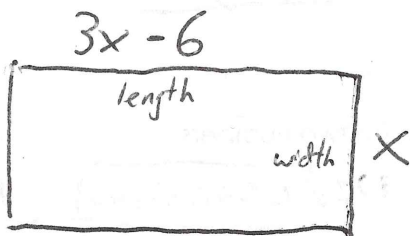 3x - 6
length
width
x